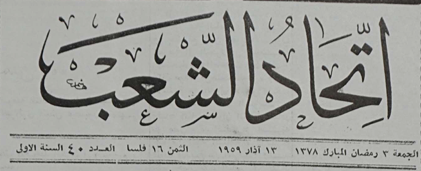 اتّحاد الشّعب
الجمعة ٣ رمضان المبارك ١٣٧٨ ١٣ آذار ١٩٥٩ الثمن ١٦ فلسا العدد ٤٠ السنة الاولى